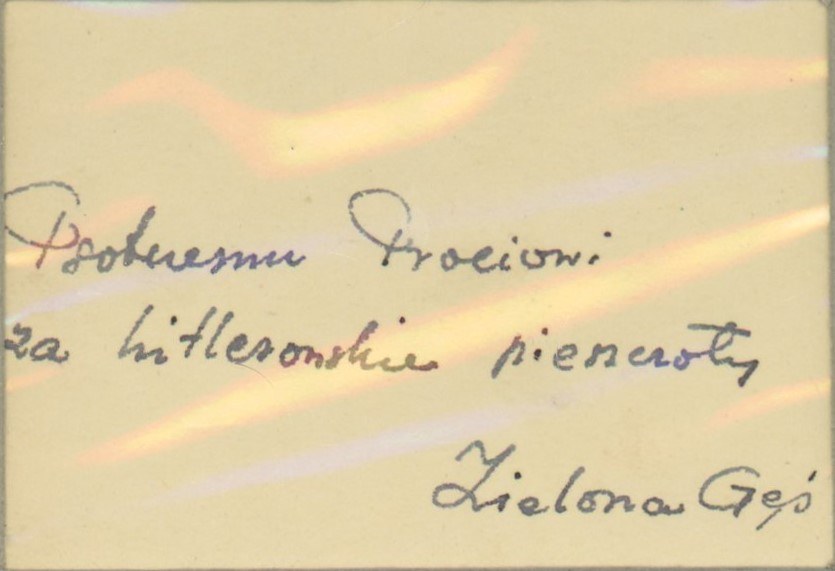 Psotnemu Procioni
za hitlerowskie pieszczoty
Zielona Gęś